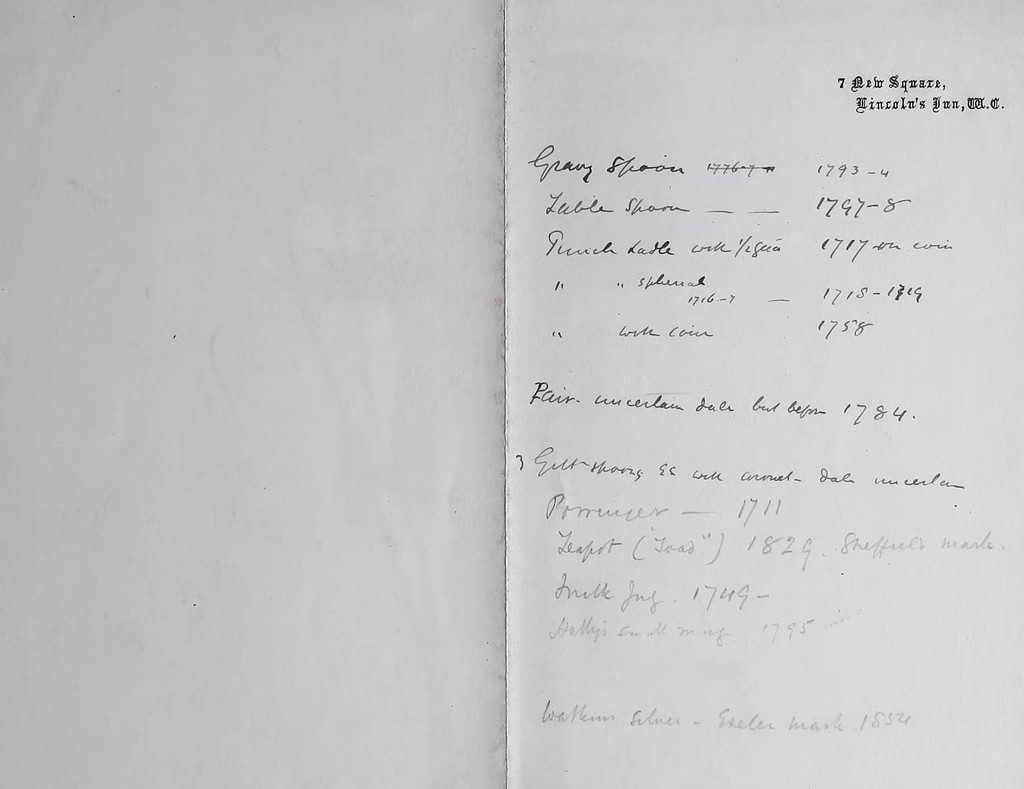 7 New Square,
Lincoln's Inn, W.C.
Gravy Spoon 1776-7 1793-4
Table Spoon — — 1797-8
Punch Ladle with 1/2 guea 1717 on coin
" " spherical
1716-7 — 1718-1719
" with coin 1758
Pair - uncertain date but before 1784.
3 Gilt spoons with coronet - date uncertain
Porringer — 1711
Teapot ("Toad") 1829. Sheffield mark.
Milk Jug. 1749-
small mug 1795
silver - Exeter mark. 1854